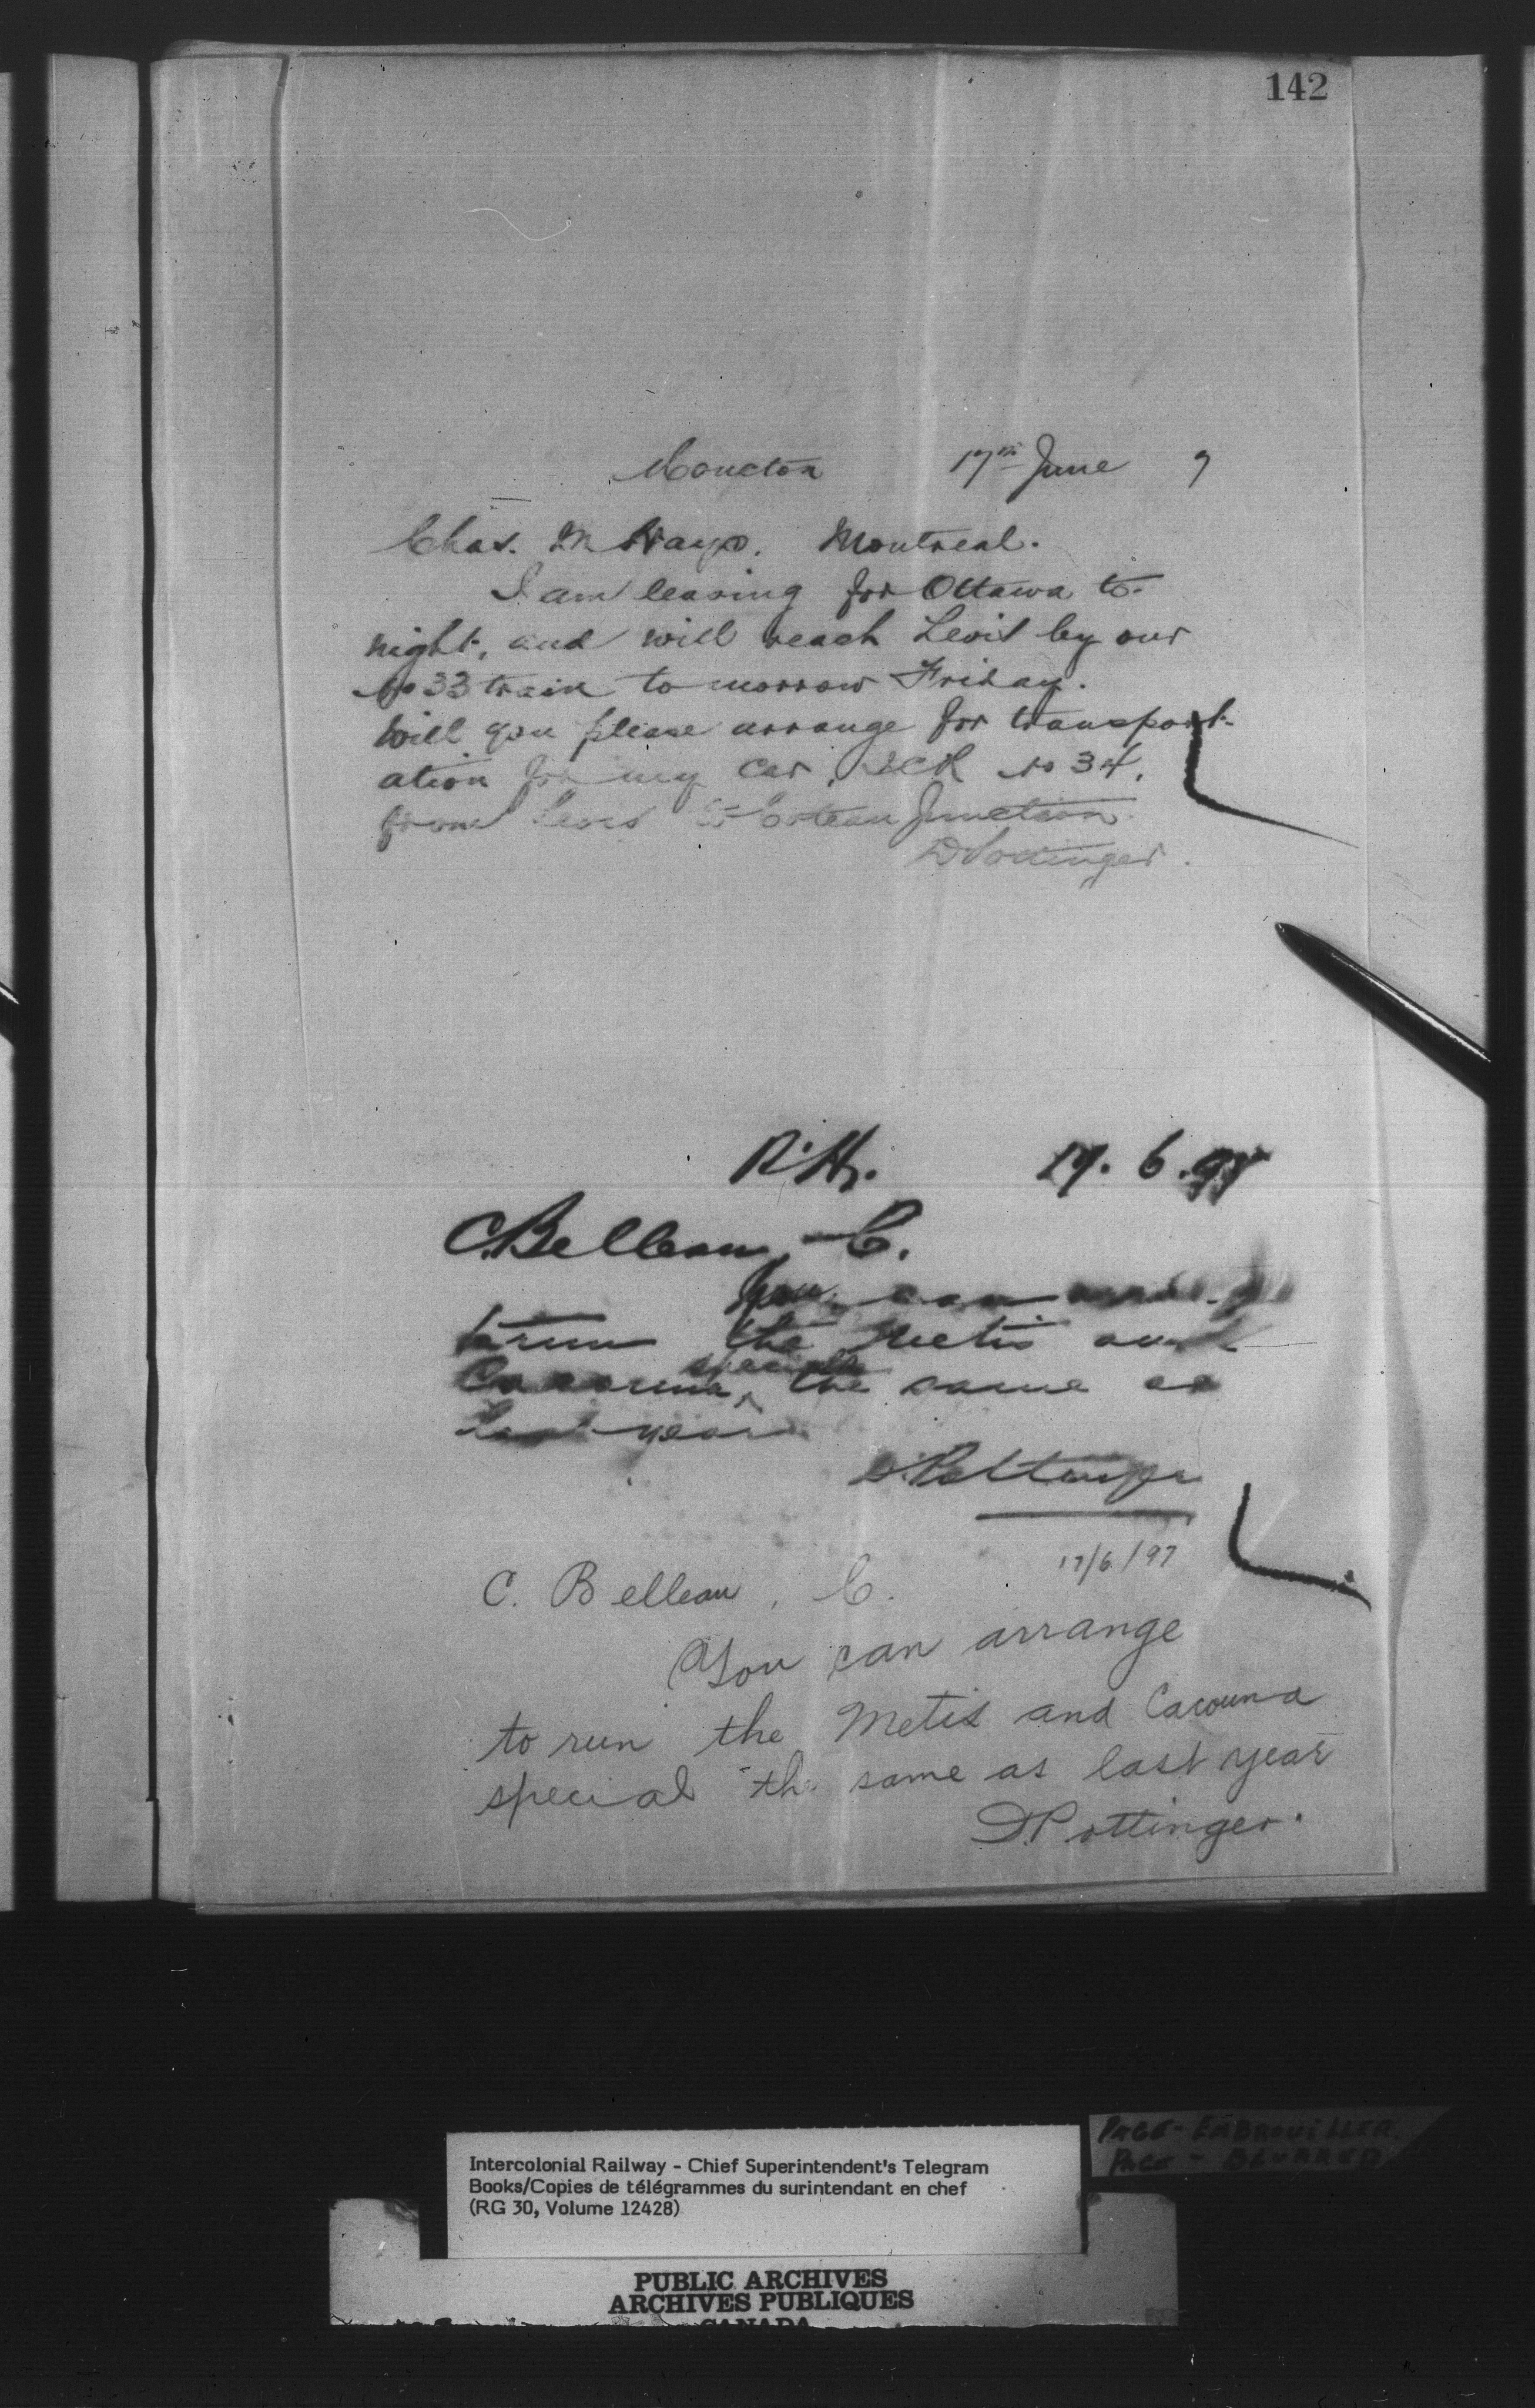 142
Moncton 17th June 7
Chas. M Hays. Montreal.
I am leaving for Ottawa to-
night, and will reach Levis by our
No 33 train to morrow Friday.
Will you please arrange for transport-
ation for my car, ICR No 34,
from Levis to Coteau Junction.
D Pottinger.
R.H. 17. 6. 97
C. Belleau, C.
You can
to run the Metis and
Cacouna, special the same as
last year
D. Pottinger
17/6/97
C. Belleau, C.
You can arrange
to run the Metis and Cacouna
special the same as last year
D. Pottinger.
PAGE - EMBROUILLER.
PAGE - BLURRED
Intercolonial Railway - Chief Superintendent's Telegram
Books/Copies de télégrammes du surintendant en chef
(RG 30, Volume 12428)
PUBLIC ARCHIVES
ARCHIVES PUBLIQUES
CANADA